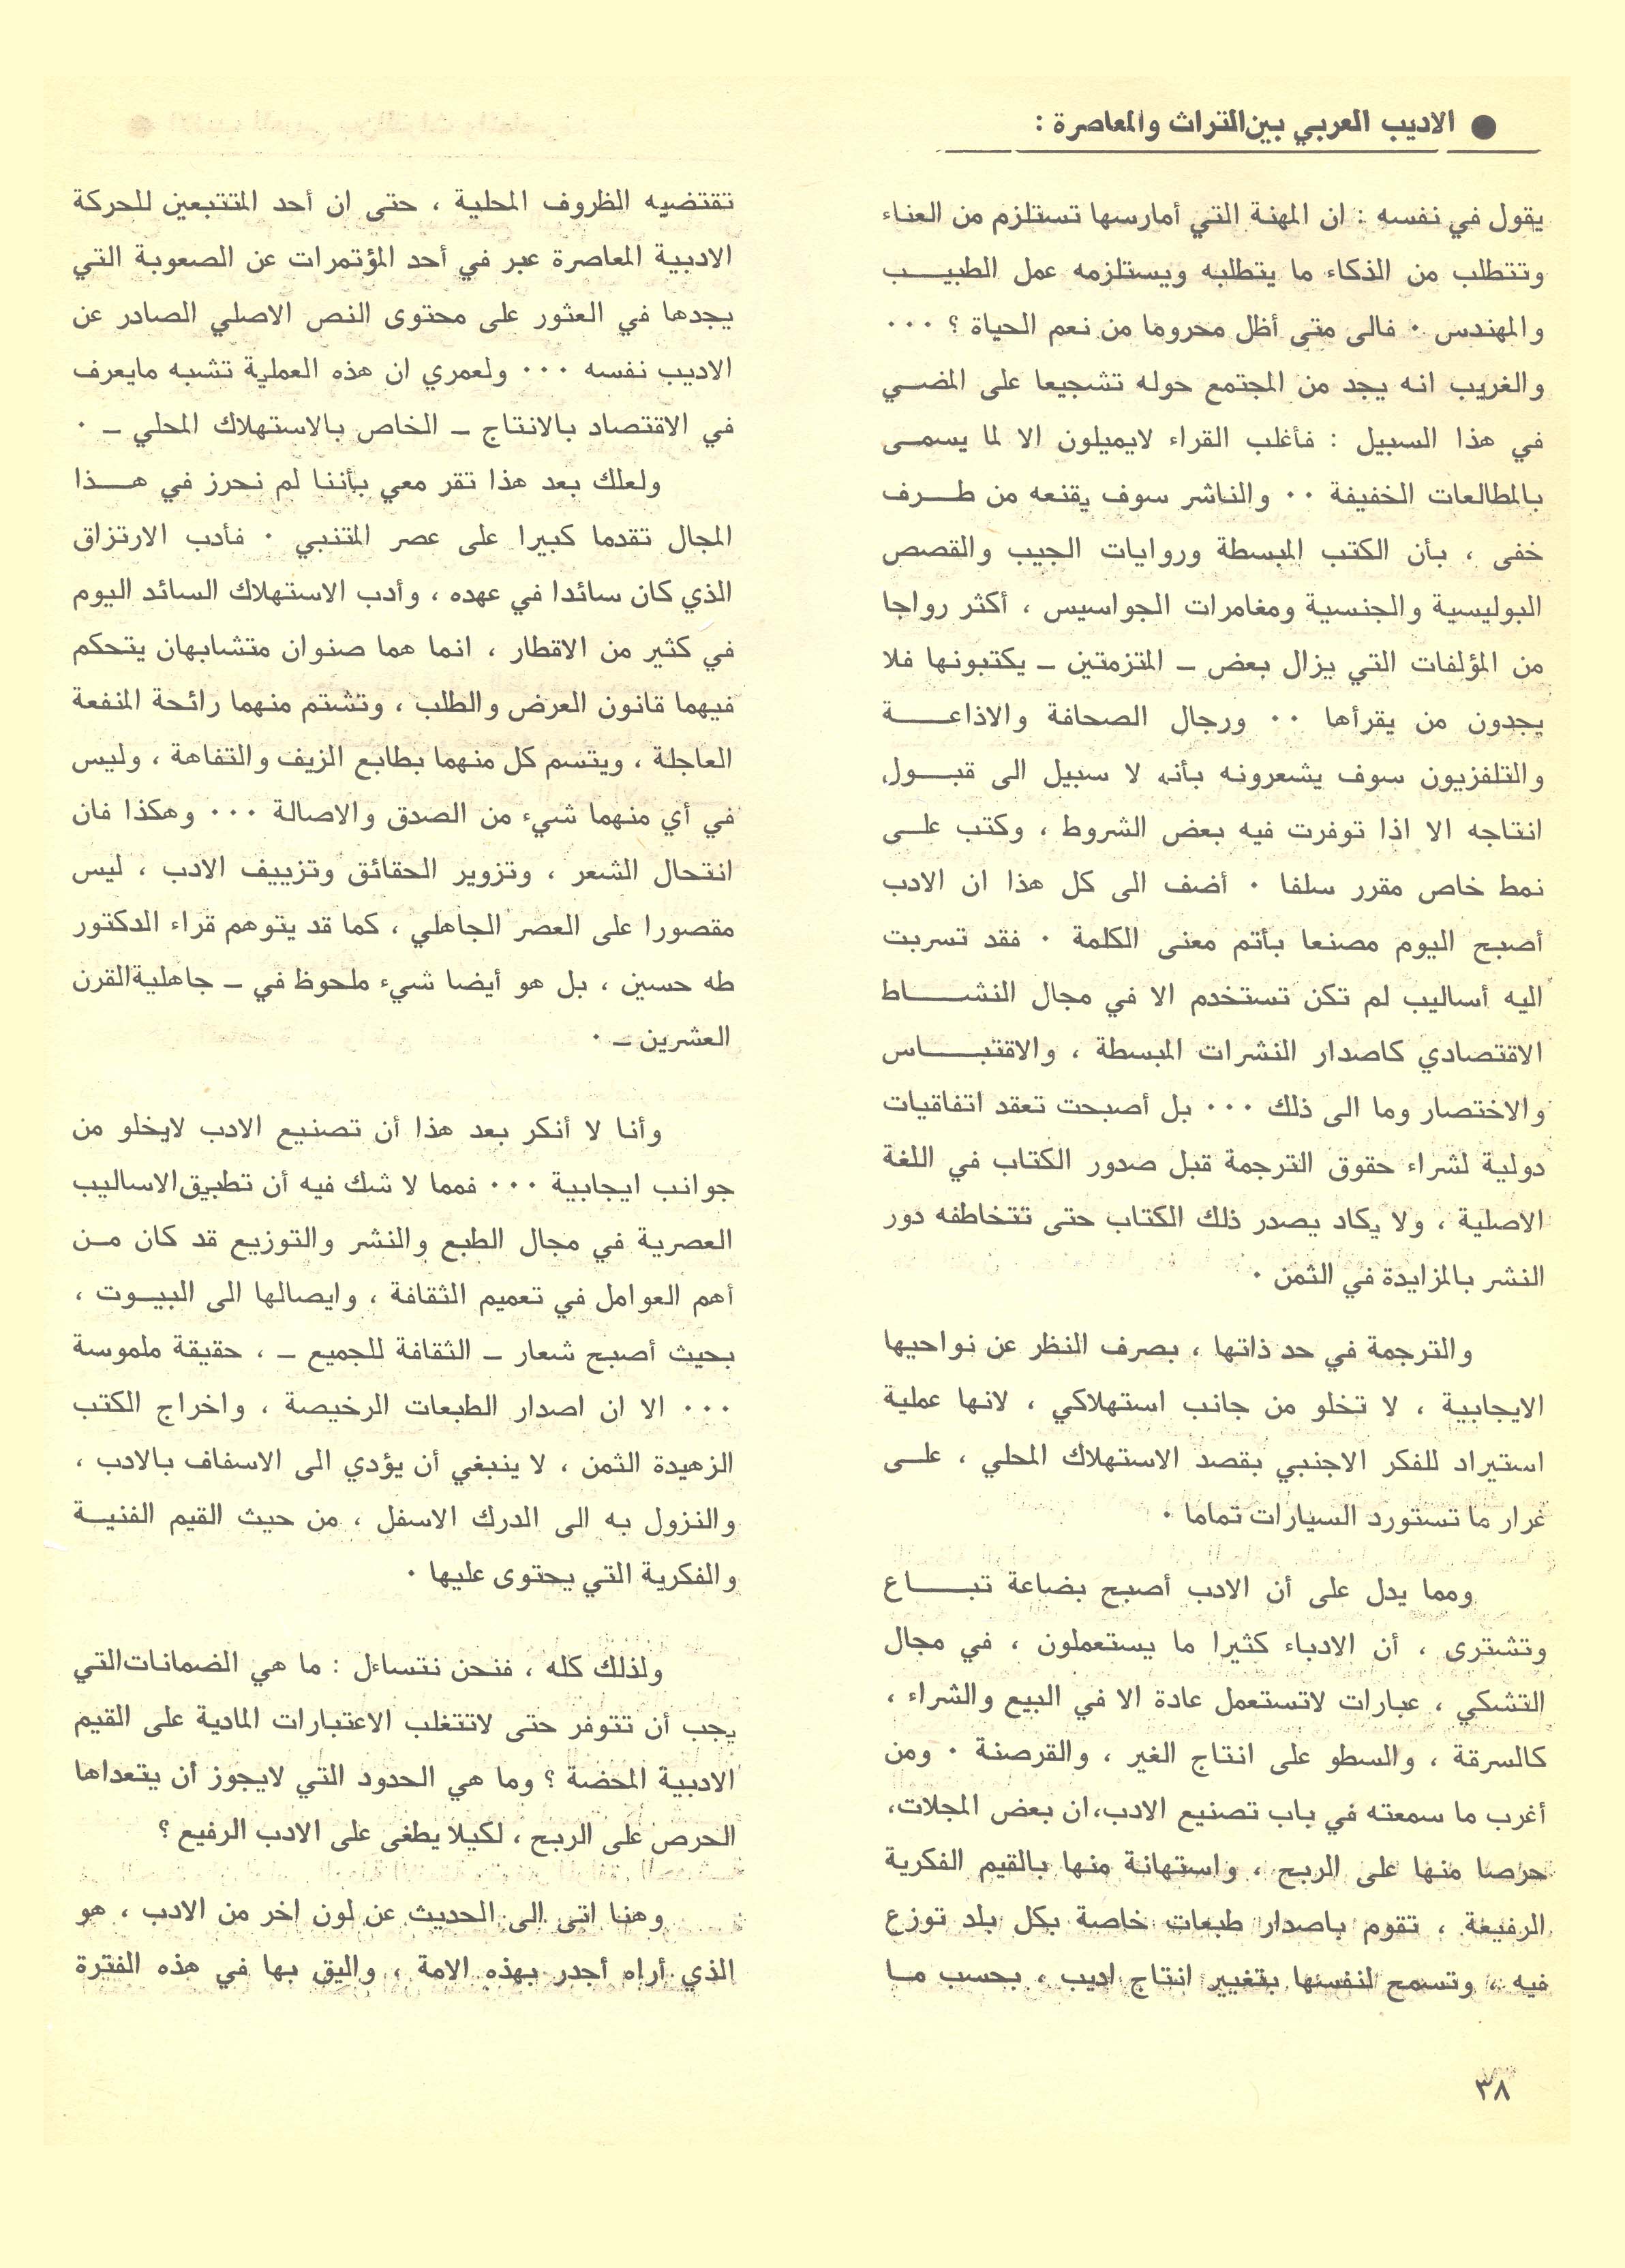 ● الاديب العربي بين التراث والمعاصرة :
يقول في نفسه : ان المهنة التي أمارسها تستلزم من العناء
وتتطلب من الذكاء ما يتطلبه ويستلزمه عمل الطبيب
والمهندس ٠ فالى متى أظل محروما من نعم الحياة ؟ ٠٠٠
والغريب انه يجد من المجتمع حوله تشجيعا على المضي
في هذا السبيل : فأغلب القراء لايميلون الا لما يسمى
بالمطالعات الخفيفة ٠٠ والناشر سوف يقنعه من طرف
خفى ، بأن الكتب المبسطة وروايات الجيب والقصص
البوليسية والجنسية ومغامرات الجواسيس ، أكثر رواجا
من المؤلفات التي يزال بعض ـ المتزمتين ـ يكتبونها فلا
يجدون من يقرأها ٠٠ ورجال الصحافة والاذاعة
والتلفزيون سوف يشعرونه بأنه لا سبيل الى قبول
انتاجه الا اذا توفرت فيه بعض الشروط ، وكتب على
نمط خاص مقرر سلفا ٠ أضف الى كل هذا ان الادب
أصبح اليوم مصنعا بأتم معنى الكلمة ٠ فقد تسربت
اليه أساليب لم تكن تستخدم الا في مجال النشاط
الاقتصادي كاصدار النشرات المبسطة ، والاقتباس
والاختصار وما الى ذلك ٠٠٠ بل أصبحت تعقد اتفاقيات
دولية لشراء حقوق الترجمة قبل صدور الكتاب في اللغة
الاصلية ، ولا يكاد يصدر ذلك الكتاب حتى تتخاطفه دور
النشر بالمزايدة في الثمن ٠
والترجمة في حد ذاتها ، بصرف النظر عن نواحيها
الايجابية ، لا تخلو من جانب استهلاكي ، لانها عملية
استيراد للفكر الاجنبي بقصد الاستهلاك المحلي ، على
غرار ما تستورد السيارات تماما ٠
ومما يدل على أن الادب أصبح بضاعة تباع
وتشترى ، أن الادباء كثيرا ما يستعملون ، في مجال
التشكي ، عبارات لاتستعمل عادة الا في البيع والشراء ،
كالسرقة ، والسطو على انتاج الغير ، والقرصنة ٠ ومن
أغرب ما سمعته في باب تصنيع الادب، ان بعض المجلات،
حرصا منها على الربح ، واستهانة منها بالقيم الفكرية
الرفيعة ، تقوم باصدار طبعات خاصة بكل بلد توزع
فيه ، وتسمح لنفسها بتغيير انتاج اديب ، بحسب ما
تقتضيه الظروف المحلية ، حتى ان أحد المتتبعين للحركة
الادبية المعاصرة عبر في أحد المؤتمرات عن الصعوبة التي
يجدها في العثور على محتوى النص الاصلي الصادر عن
الاديب نفسه ٠٠٠ ولعمري ان هذه العملية تشبه مايعرف
في الاقتصاد بالانتاج ـ الخاص بالاستهلاك المحلي ـ ٠
ولعلك بعد هذا تقر معي بأننا لم نحرز في هذا
المجال تقدما كبيرا على عصر المتنبي ٠ فأدب الارتزاق
الذي كان سائدا في عهده ، وأدب الاستهلاك السائد اليوم
في كثير من الاقطار ، انما هما صنوان متشابهان يتحكم
فيهما قانون العرض والطلب ، وتشتم منهما رائحة المنفعة
العاجلة ، ويتسم كل منهما بطابع الزيف والتفاهة ، وليس
في أي منهما شيء من الصدق والاصالة ٠٠٠ وهكذا فان
انتحال الشعر ، وتزوير الحقائق وتزييف الادب ، ليس
مقصورا على العصر الجاهلي ، كما قد يتوهم قراء الدكتور
طه حسين ، بل هو أيضا شيء ملحوظ في ـ جاهلية القرن
العشرين ـ ٠
وأنا لا أنكر بعد هذا أن تصنيع الادب لايخلو من
جوانب ايجابية ٠٠٠ فمما لا شك فيه أن تطبيق الاساليب
العصرية في مجال الطبع والنشر والتوزيع قد كان من
أهم العوامل في تعميم الثقافة ، وايصالها الى البيوت ،
بحيث أصبح شعار ـ الثقافة للجميع ـ ، حقيقة ملموسة
٠٠٠ الا ان اصدار الطبعات الرخيصة ، واخراج الكتب
الزهيدة الثمن ، لا ينبغي أن يؤدي الى الاسفاف بالادب ،
والنزول به الى الدرك الاسفل ، من حيث القيم الفنية
والفكرية التي يحتوى عليها ٠
ولذلك كله ، فنحن نتساءل : ما هي الضمانات التي
يجب أن تتوفر حتى لاتتغلب الاعتبارات المادية على القيم
الادبية المحضة ؟ وما هي الحدود التي لايجوز أن يتعداها
الحرص على الربح ، لكيلا يطغى على الادب الرفيع ؟
وهنا اتى الى الحديث عن لون اخر من الادب ، هو
الذي أراه أجدر بهذه الامة ، واليق بها في هذه الفترة
٣٨